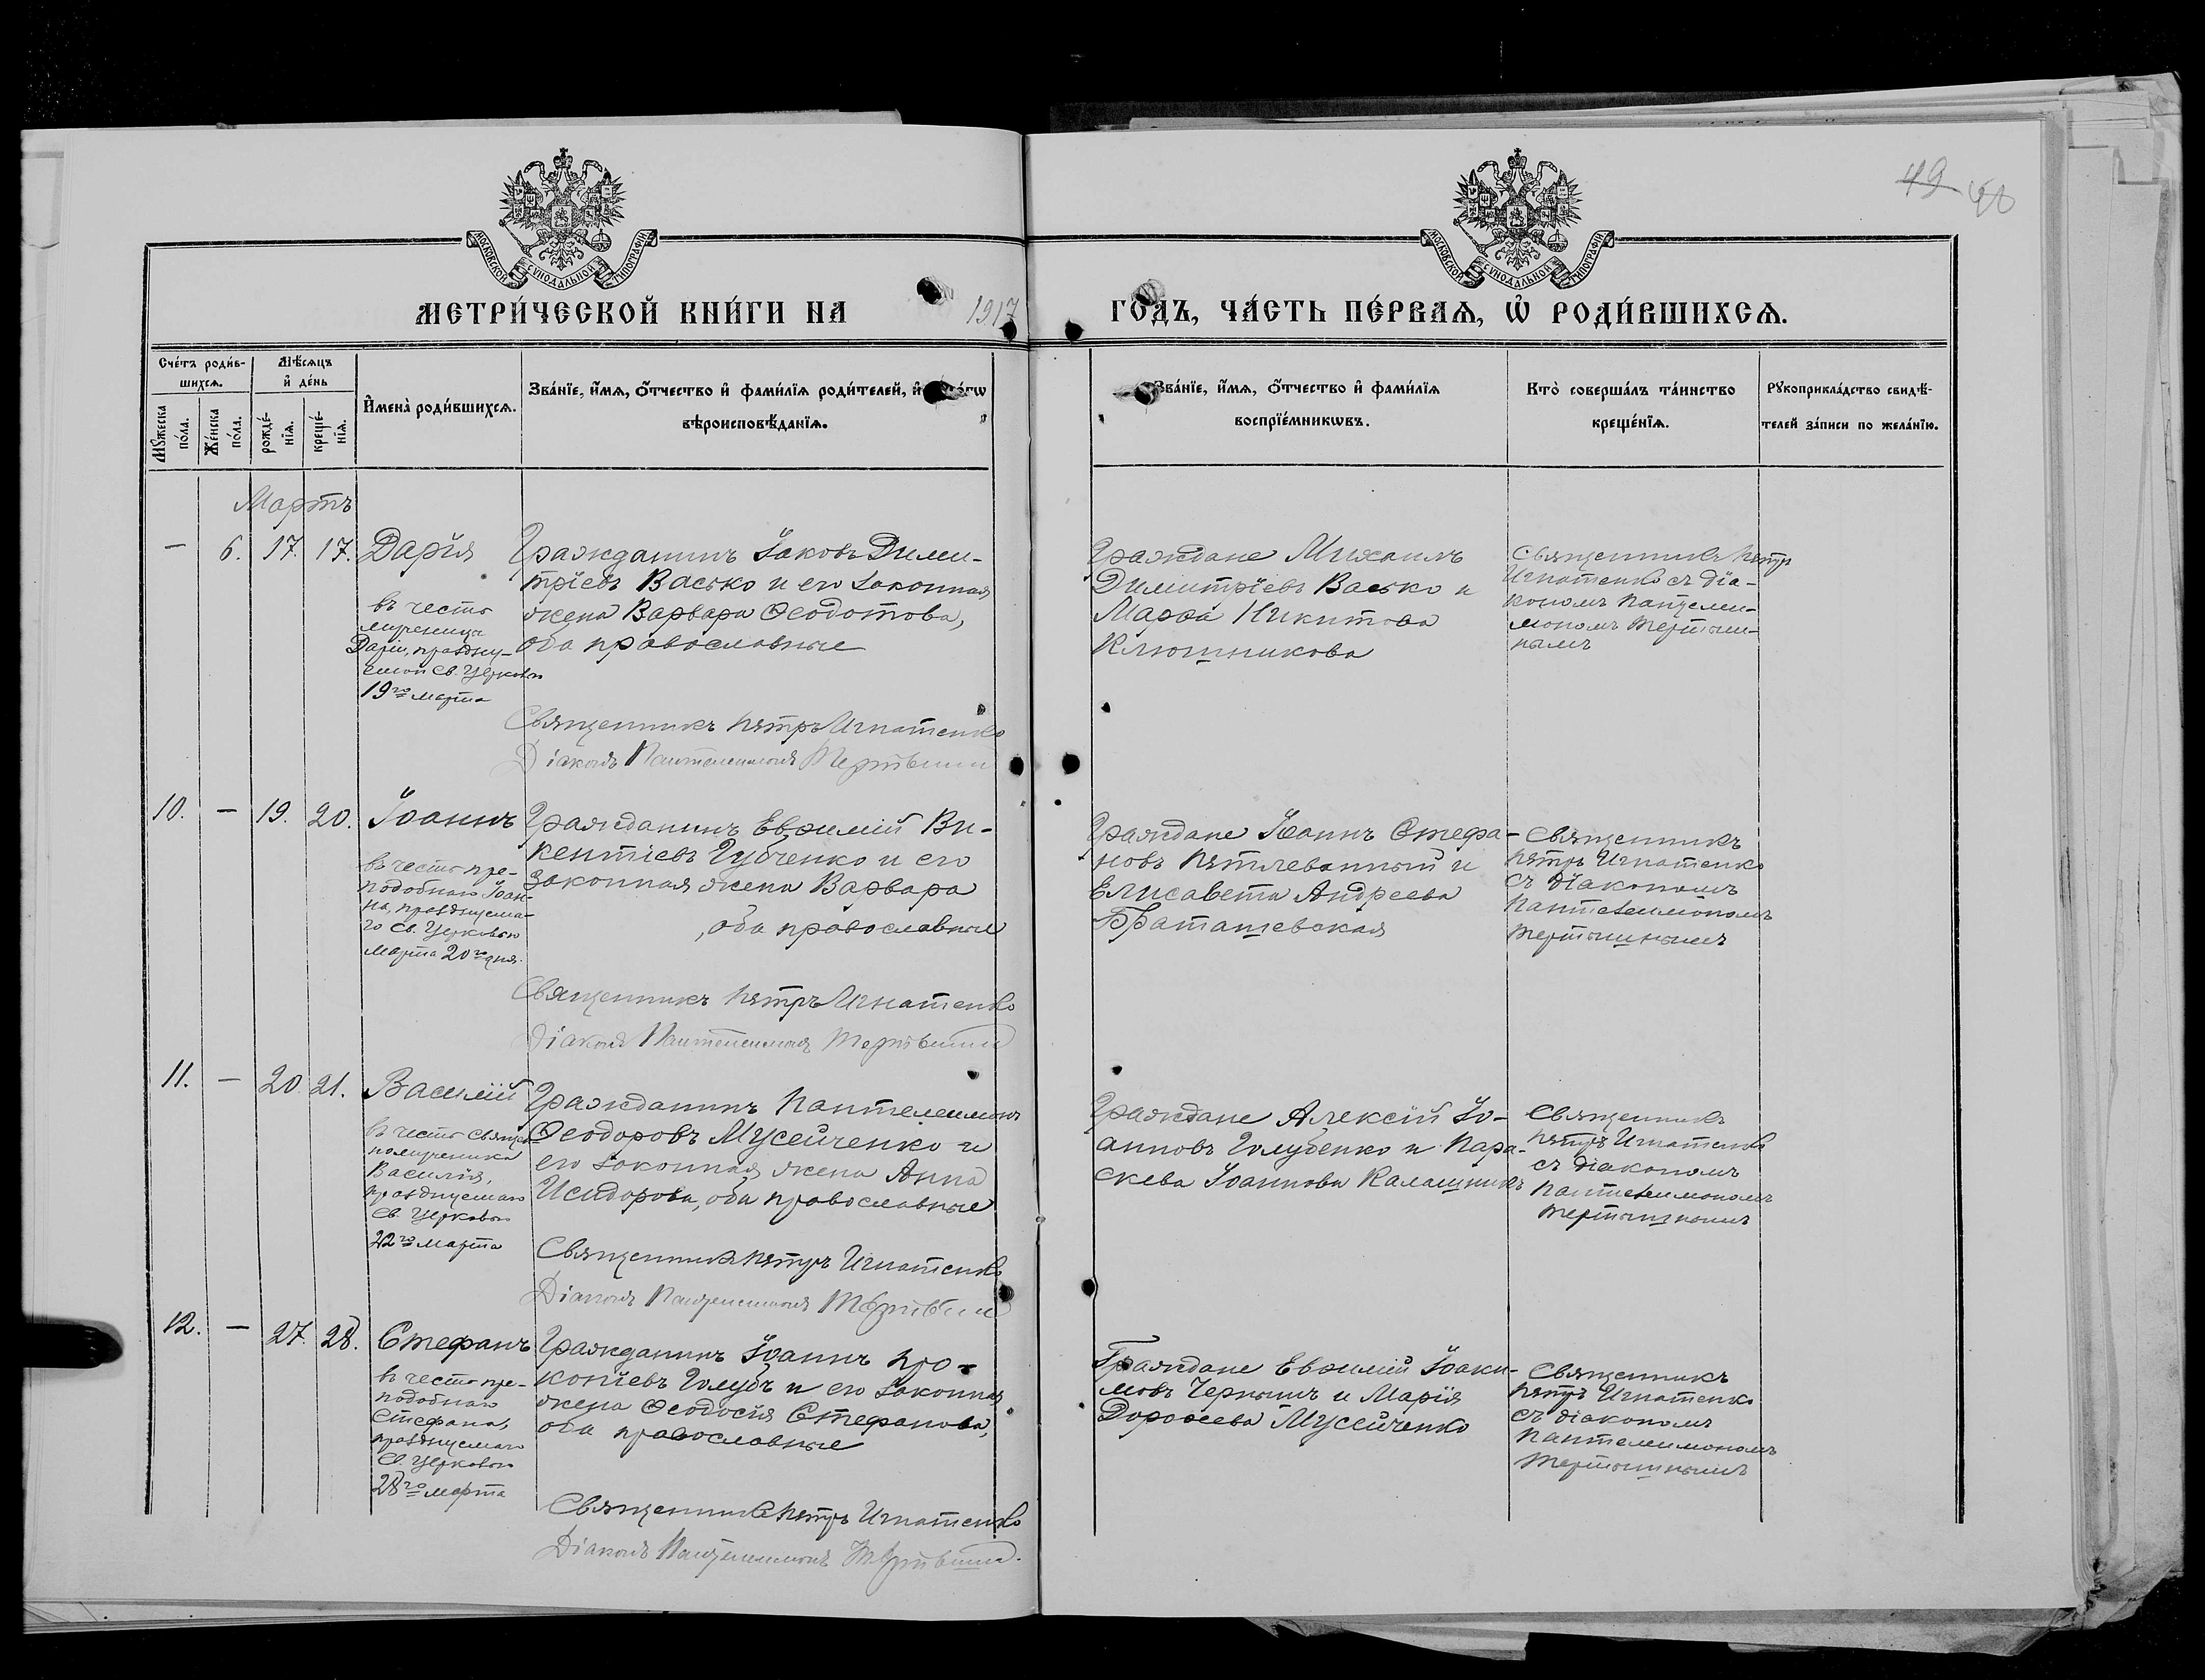 49 50
МОСКОВСКОЙ СѴНОДАЛЬНОЙ ТИПОГРАФІИ
МОСКОВСКОЙ СѴНОДАЛЬНОЙ ТИПОГРАФІИ
МЕТРИ́ЧЕСКОЙ КНИ́ГИ НА 1917 ГО́ДЪ, ЧА́СТЬ ПЕ́РВАѦ, Ѡ҆ РОДИ́ВШИХСѦ.
Сче́тъ роди́в-
шихсѧ.
Мѣ́сѧцъ
и҆ де́нь
Мꙋ́жеска
по́ла.
Же́нска
по́ла.
рожде́-
нїѧ.
креще́-
нїѧ.
И҆мена̀ роди́вшихсѧ.
Зва́нїе, и҆́мѧ, ѻ҆́тчество и҆ фами́лїѧ роди́телей, и҆
вѣроисповѣ́данїѧ.
Зва́нїе, и҆́мѧ, ѻ҆́тчество и҆ фами́лїѧ
воспрїе́мникѡвъ.
Кто̀ соверша́лъ та́инство
креще́нїѧ.
Рꙋкоприкла́дство свидѣ́-
телей за́писи по жела́нїю.
Мартъ
— 6. 17. 17. Дарїя
въ честь
мученицы
Даріи, праздну-
емой Св. Церковью
19го марта
Гражданинъ Іаковъ Дими-
тріевъ Васько и его законная
жена Варвара Ѳеодотова,
оба православные
Священникъ Петръ Игнатенко
Діаконъ Пантелеимонъ
Граждане Михаилъ
Димитріевъ Васько и
Марѳа Никитова
Клюшникова
Священникъ Петръ
Игнатенко съ діа-
кономъ Пантелеи-
мономъ Тертыш-
нымъ
10. — 19. 20. Іоаннъ
въ честь пре-
подобнаго Іоан-
на, празднуема-
го Св. Церковью
марта 20го дня.
Гражданинъ Евѳимій Ви-
кентіевъ Губченко и его
законная жена Варвара
, оба православные
Священникъ Петръ Игнатенко
Діаконъ Пантелеимонъ
Граждане Іоаннъ Стефа-
новъ Петлеванный и
Елисавета Андреева
Браташевская
Священникъ
Петръ Игнатенко
съ діакономъ
Пантелеимономъ
Тертышнымъ
11. — 20. 21. Василій
въ честь священ-
номученика
Василія,
празднуемаго
Св. Церковью
22го марта
Гражданинъ Пантелеимонъ
Ѳеодоровъ Мусейченко и
его законная жена Анна
Исидорова, оба православные
Священникъ Петръ Игнатенко
Діаконъ Пантелеимонъ
Граждане Алексій Іо-
анновъ Голубенко и Пара-
скева Іоаннова Калашник
Священникъ
Петръ Игнатенко
съ діакономъ
Пантелеимономъ
Тертышнымъ
12. — 27. 28. Стефанъ
въ честь пре-
подобнаго
Стефана,
празднуемаго
Св. Церковью
28го марта
Гражданинъ Іоаннъ Про-
копіевъ Голубъ и его законная
жена Ѳеодосія Стефанова,
оба православные
Священникъ Петръ Игнатенко
Діаконъ Пантелеимонъ
Граждане Евѳимій Іоаки-
мовъ Чернышъ и Марія
Дороѳеева Мусейченко
Священникъ
Петръ Игнатенко
съ діакономъ
Пантелеимономъ
Тертышнымъ